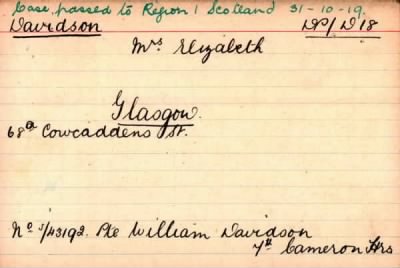 Case passed to Region 1 Scotland 31-10-19.
Davidson DP/D18
Mrs Elizabeth
Glasgow.
68a Cowcaddens St.
No S/43192. Pte William Davidson
7th Cameron Hrs